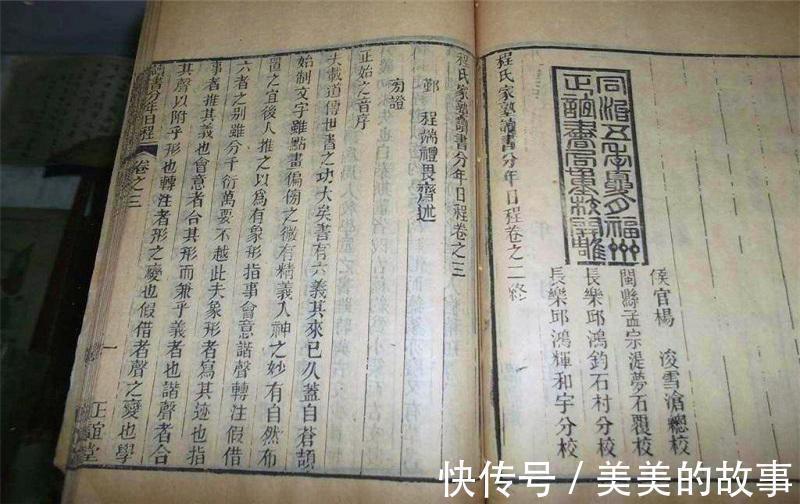 同治五年夏月福州
正誼書局重校開雕
侯官楊 浚雪滄總校
閩縣孟宗湜夢石覆校
長樂邱鴻鈞石村分校
長樂邱鴻輝和宇分校
程氏家塾讀書分年日程卷之二終
程氏家塾讀書分年日程卷之三
鄞 程端禮畏齋述
旁證
正始之音序
夫載道傳世書之功大矣書有六義其來已久蓋自蒼頡
始制文字雖點畫偏傍之微有精義入神之妙有自然布
置之宜後人推之以爲有象形指事會意諧聲轉注假借
六者之別雖分千衍萬要不越此夫象形者寫其迹也指
事者推其義也會意者合其形而兼乎義者也諧聲者合
其聲以附乎形也轉注者形之變也假借者聲之變也學
讀書分年日程 卷之三 一 正誼堂
快传号 / 美美的故事